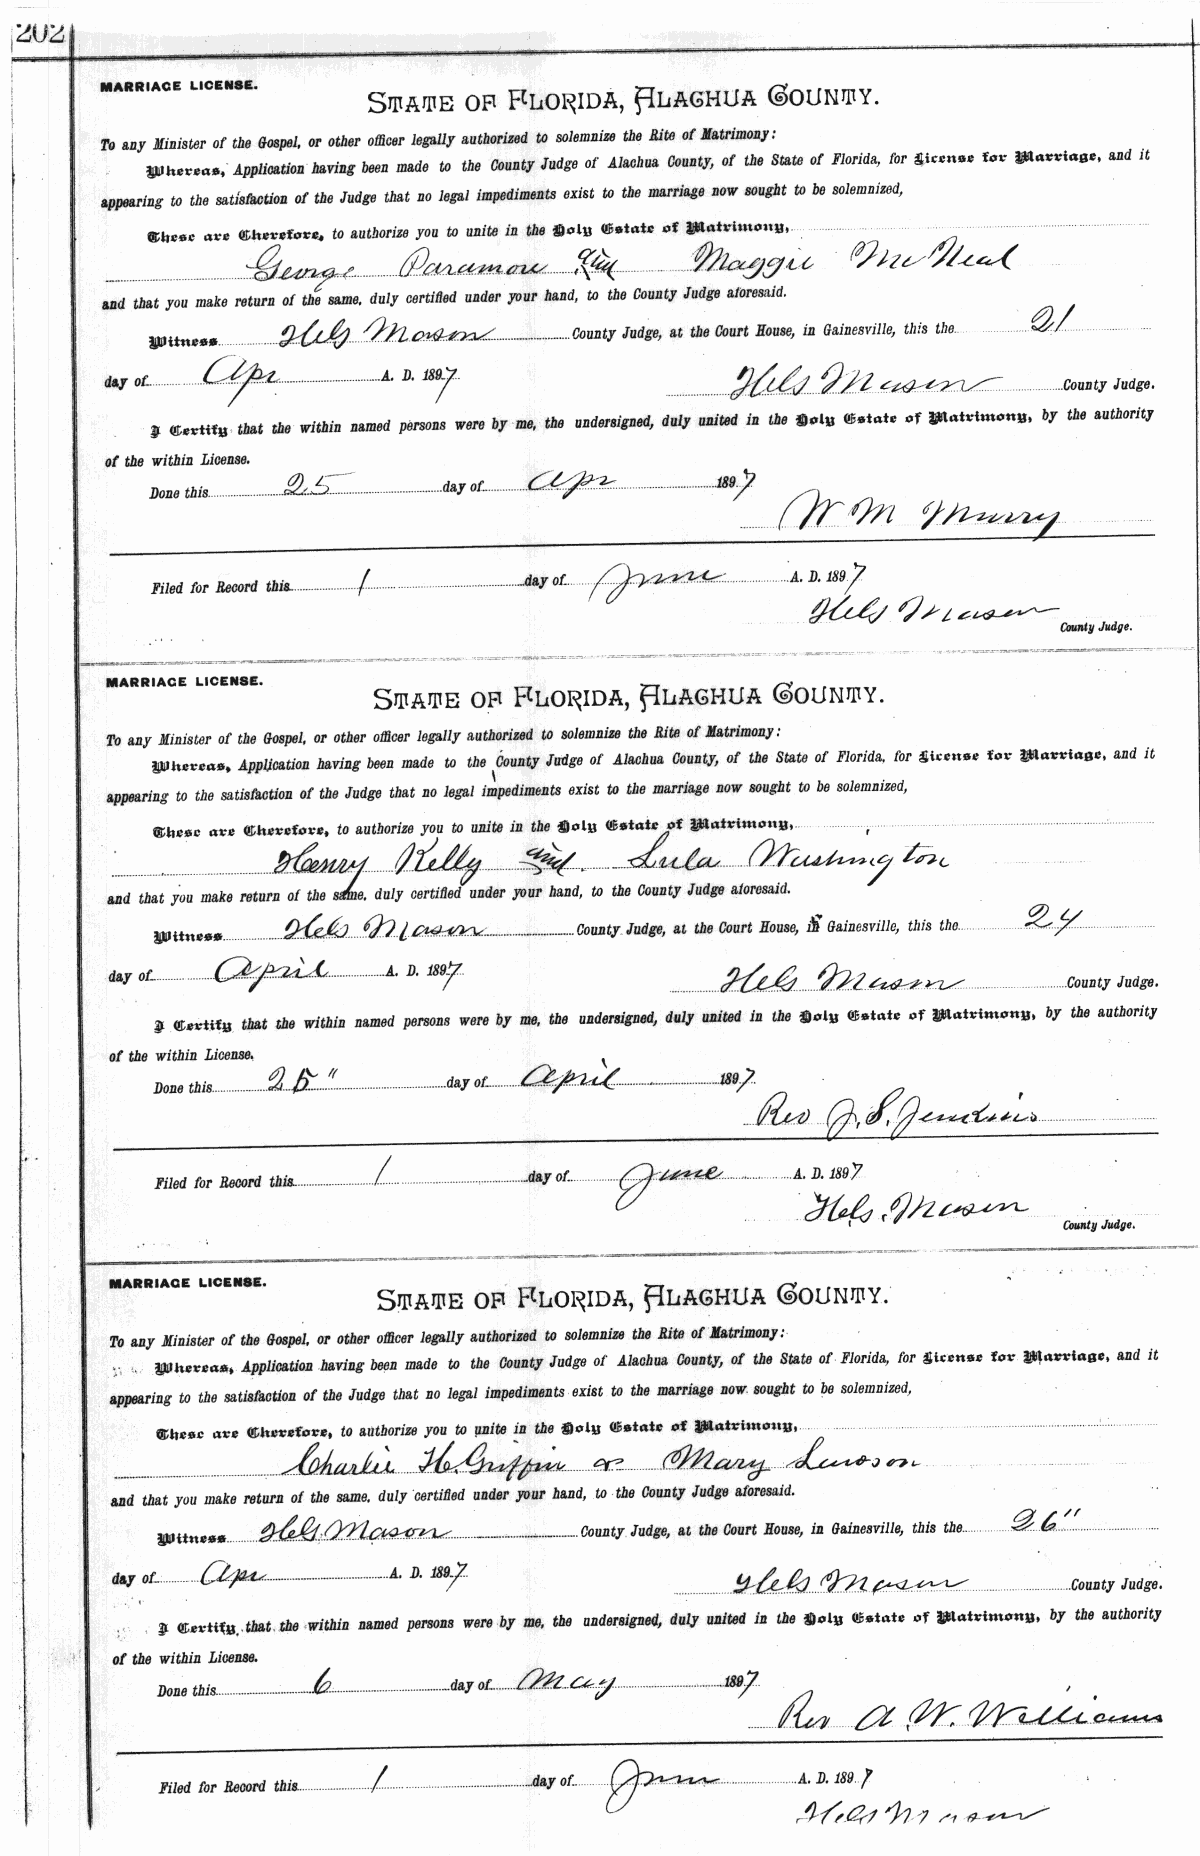 202
MARRIAGE LICENSE.
STATE OF FLORIDA, ALACHUA COUNTY.
To any Minister of the Gospel, or other officer legally authorized to solemnize the Rite of Matrimony:
Whereas, Application having been made to the County Judge of Alachua County, of the State of Florida, for License for Marriage, and it
appearing to the satisfaction of the Judge that no legal impediments exist to the marriage now sought to be solemnized,
These are Therefore, to authorize you to unite in the Holy Estate of Matrimony,
George Paramore and Maggie McNeal
and that you make return of the same, duly certified under your hand, to the County Judge aforesaid.
Witness Hels Mason County Judge, at the Court House, in Gainesville, this the 21
day of Apr A. D. 1897
Hels Mason County Judge.
I Certify that the within named persons were by me, the undersigned, duly united in the Holy Estate of Matrimony, by the authority
of the within License.
Done this 25 day of Apr 1897
W M Murry
Filed for Record this 1 day of June A. D. 1897
Hels Mason
County Judge.
MARRIAGE LICENSE.
STATE OF FLORIDA, ALACHUA COUNTY.
To any Minister of the Gospel, or other officer legally authorized to solemnize the Rite of Matrimony:
Whereas, Application having been made to the County Judge of Alachua County, of the State of Florida, for License for Marriage, and it
appearing to the satisfaction of the Judge that no legal impediments exist to the marriage now sought to be solemnized,
These are Therefore, to authorize you to unite in the Holy Estate of Matrimony,
Henry Kelly and Lula Washington
and that you make return of the same, duly certified under your hand, to the County Judge aforesaid.
Witness Hels Mason County Judge, at the Court House, in Gainesville, this the 24
day of April A. D. 1897
Hels Mason County Judge.
I Certify that the within named persons were by me, the undersigned, duly united in the Holy Estate of Matrimony, by the authority
of the within License.
Done this 25" day of April 1897
Rev J. S. Jenkins
Filed for Record this 1 day of June A. D. 1897
Hels. Mason
County Judge.
MARRIAGE LICENSE.
STATE OF FLORIDA, ALACHUA COUNTY.
To any Minister of the Gospel, or other officer legally authorized to solemnize the Rite of Matrimony:
Whereas, Application having been made to the County Judge of Alachua County, of the State of Florida, for License for Marriage, and it
appearing to the satisfaction of the Judge that no legal impediments exist to the marriage now sought to be solemnized,
These are Therefore, to authorize you to unite in the Holy Estate of Matrimony,
Charlie H. Griffin & Mary Lawson
and that you make return of the same, duly certified under your hand, to the County Judge aforesaid.
Witness Hels Mason County Judge, at the Court House, in Gainesville, this the 26"
day of Apr A. D. 1897
Hels Mason County Judge.
I Certify, that the within named persons were by me, the undersigned, duly united in the Holy Estate of Matrimony, by the authority
of the within License.
Done this 6 day of May 1897
Rev A. W. Williams
Filed for Record this 1 day of June A. D. 1897
Hels Mason